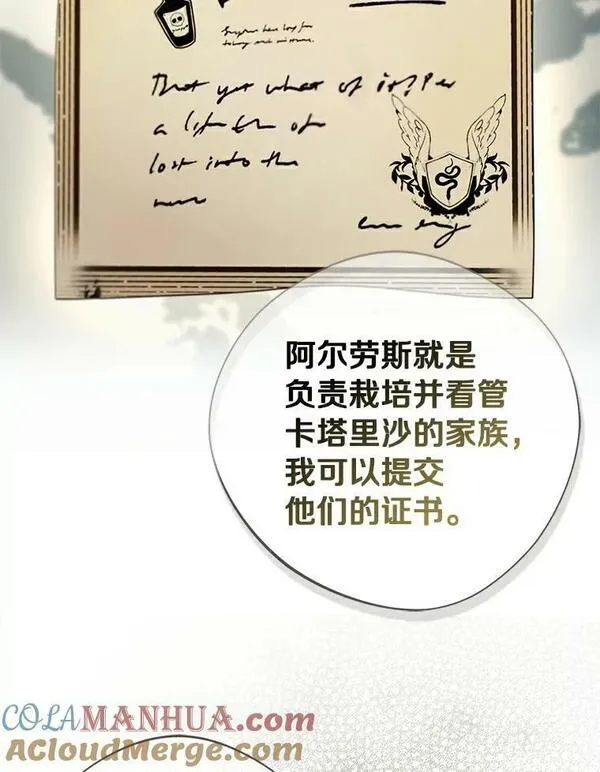 That yet what of it? Per
a
lost into the
阿尔劳斯就是
负责栽培并看管
卡塔里沙的家族，
我可以提交
他们的证书。
COLAMANHUA.com
AcloudMerge.com